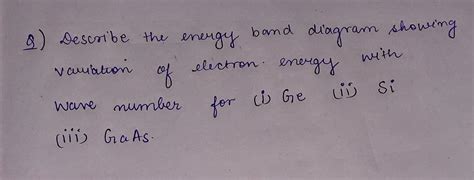 Q) Describe the energy band diagram showing
variation of electron energy with
wave number for (i) Ge (ii) Si
(iii) GaAs.